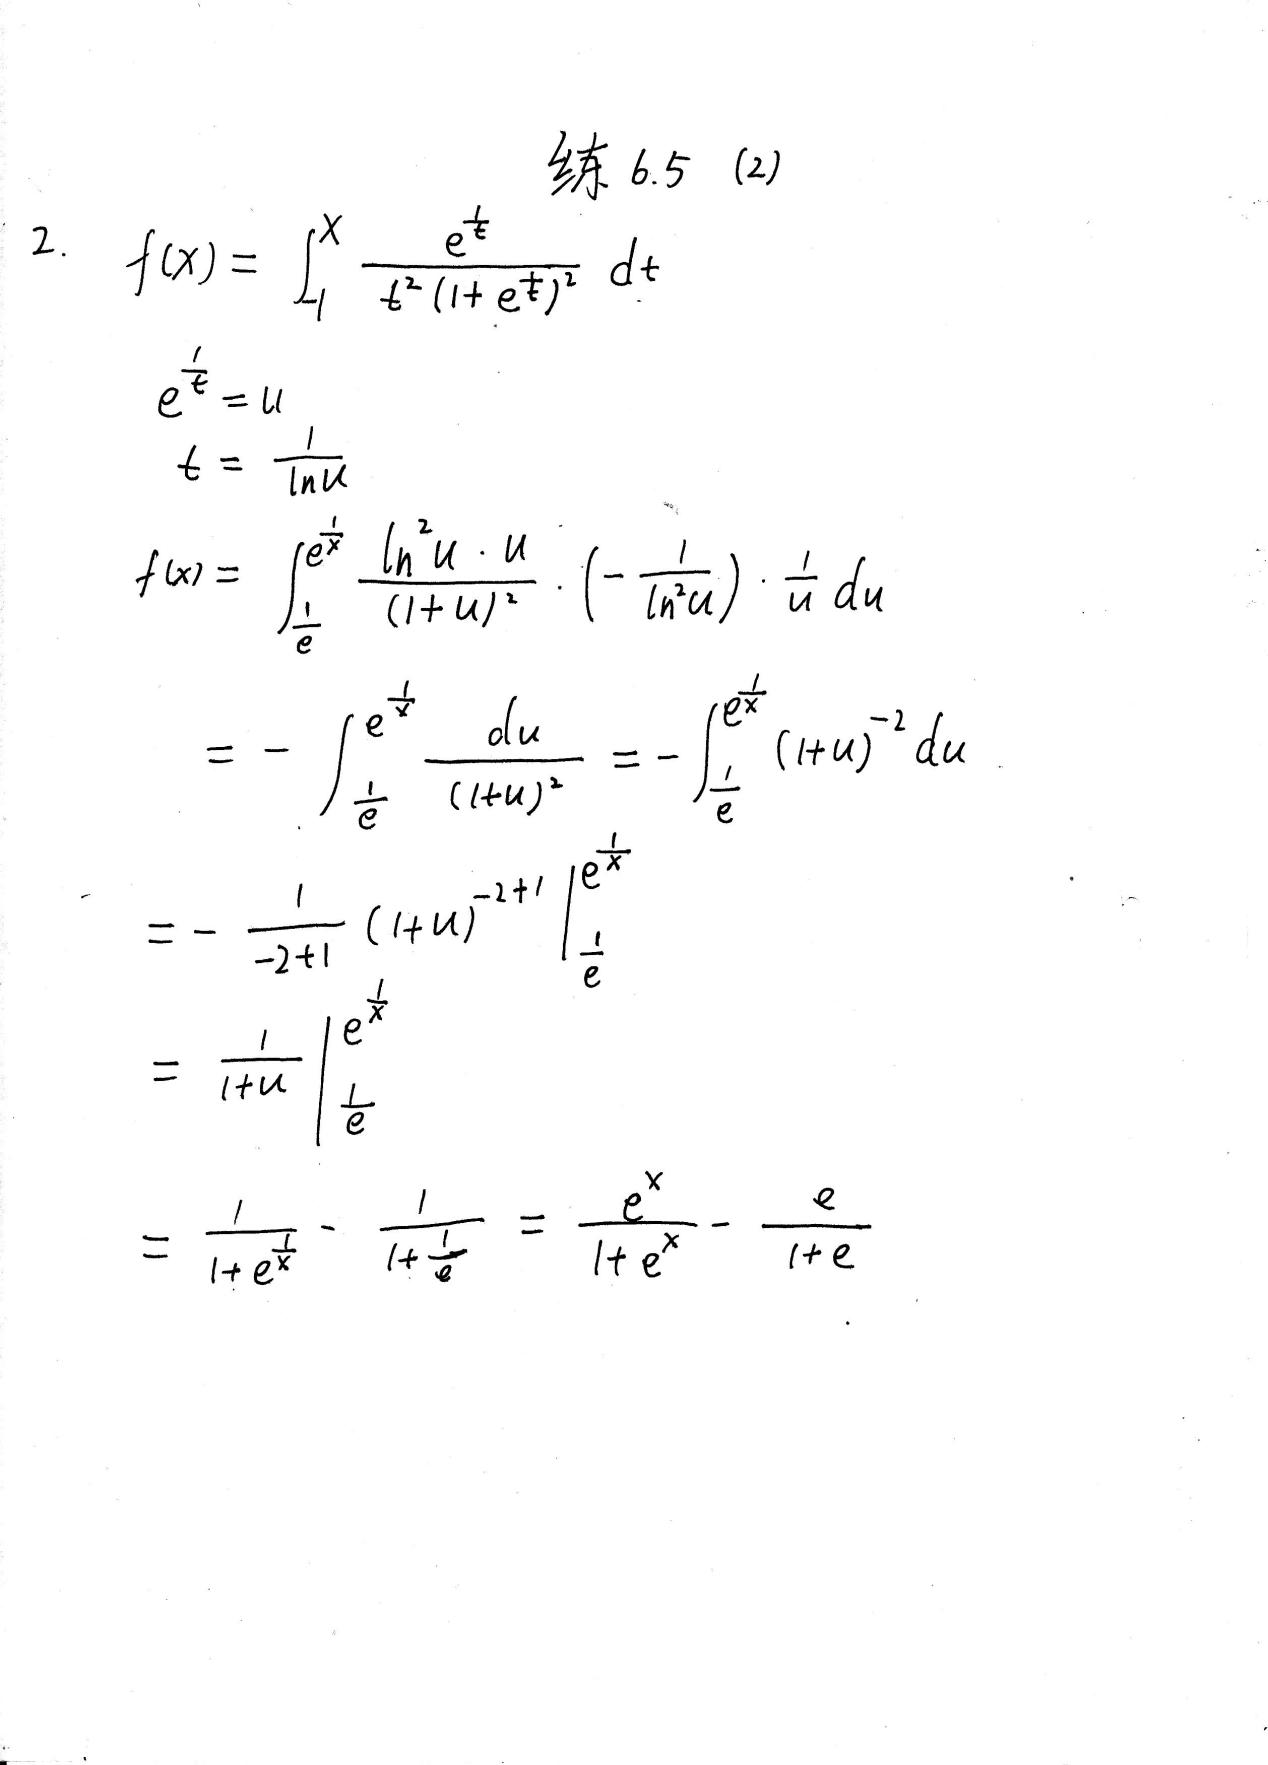 练 6.5 (2)
2. f(x) = ∫_{-1}^{x} \frac{e^{\frac{1}{t}}}{t²(1+e^{\frac{1}{t}})²} dt
e^{\frac{1}{t}} = u
t = \frac{1}{ln u}
f(x) = ∫_{\frac{1}{e}}^{e^{\frac{1}{x}}} \frac{ln²u · u}{(1+u)²} · (-\frac{1}{ln²u}) · \frac{1}{u} du
= - ∫_{\frac{1}{e}}^{e^{\frac{1}{x}}} \frac{du}{(1+u)²} = - ∫_{\frac{1}{e}}^{e^{\frac{1}{x}}} (1+u)^{-2} du
= - \frac{1}{-2+1} (1+u)^{-2+1} |_{\frac{1}{e}}^{e^{\frac{1}{x}}}
= \frac{1}{1+u} |_{\frac{1}{e}}^{e^{\frac{1}{x}}}
= \frac{1}{1+e^{\frac{1}{x}}} - \frac{1}{1+\frac{1}{e}} = \frac{e^{x}}{1+e^{x}} - \frac{e}{1+e}